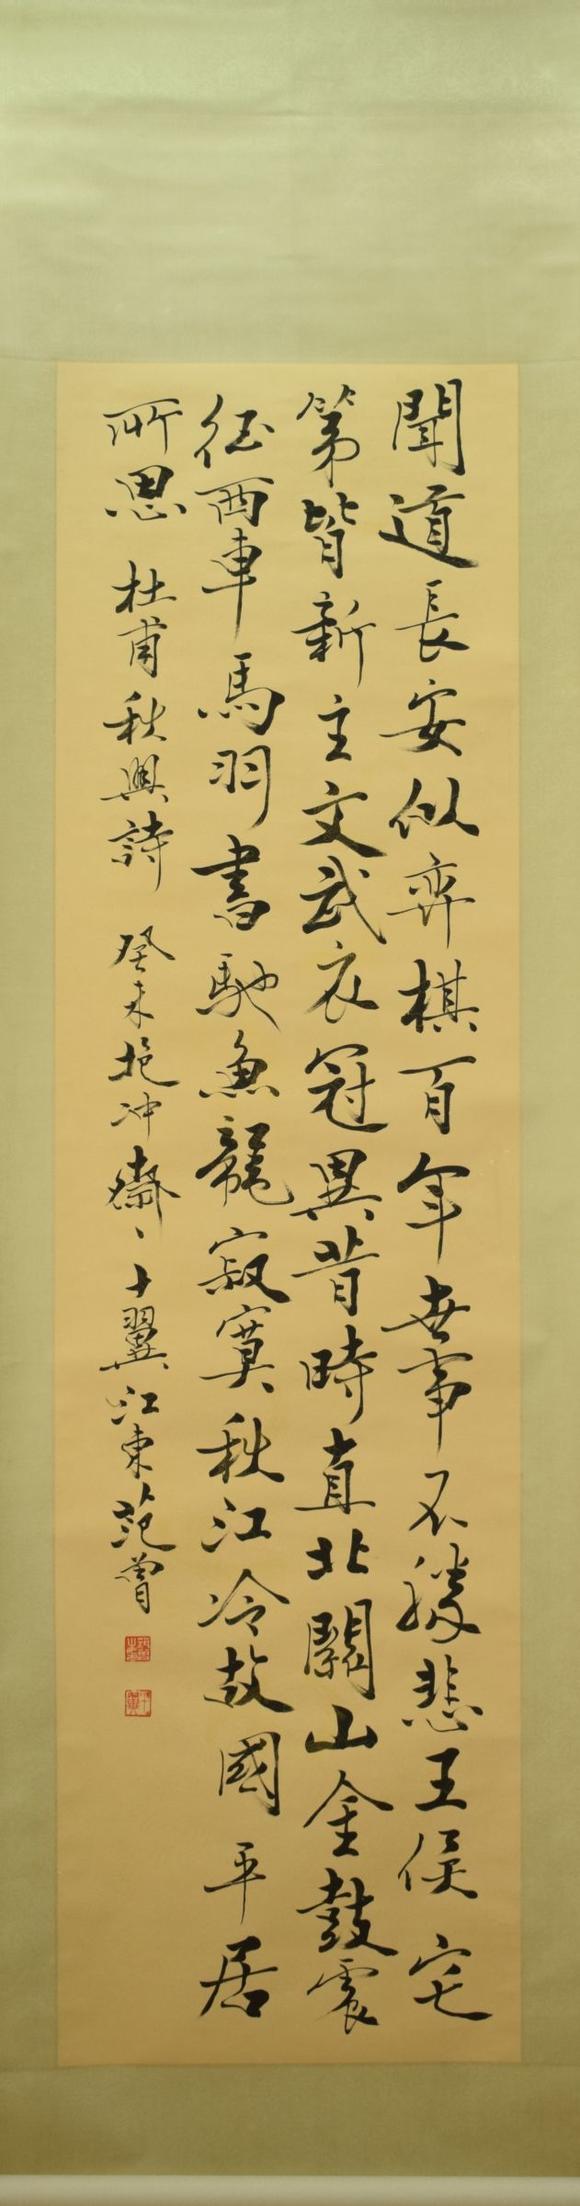 聞道長安似弈棋百年世事不勝悲王侯宅
第皆新主文武衣冠異昔時直北關山金鼓震
征西車馬羽書馳魚龍寂寞秋江冷故國平居
所思 杜甫秋興詩 癸未抱冲齋丶十翼江東范曾